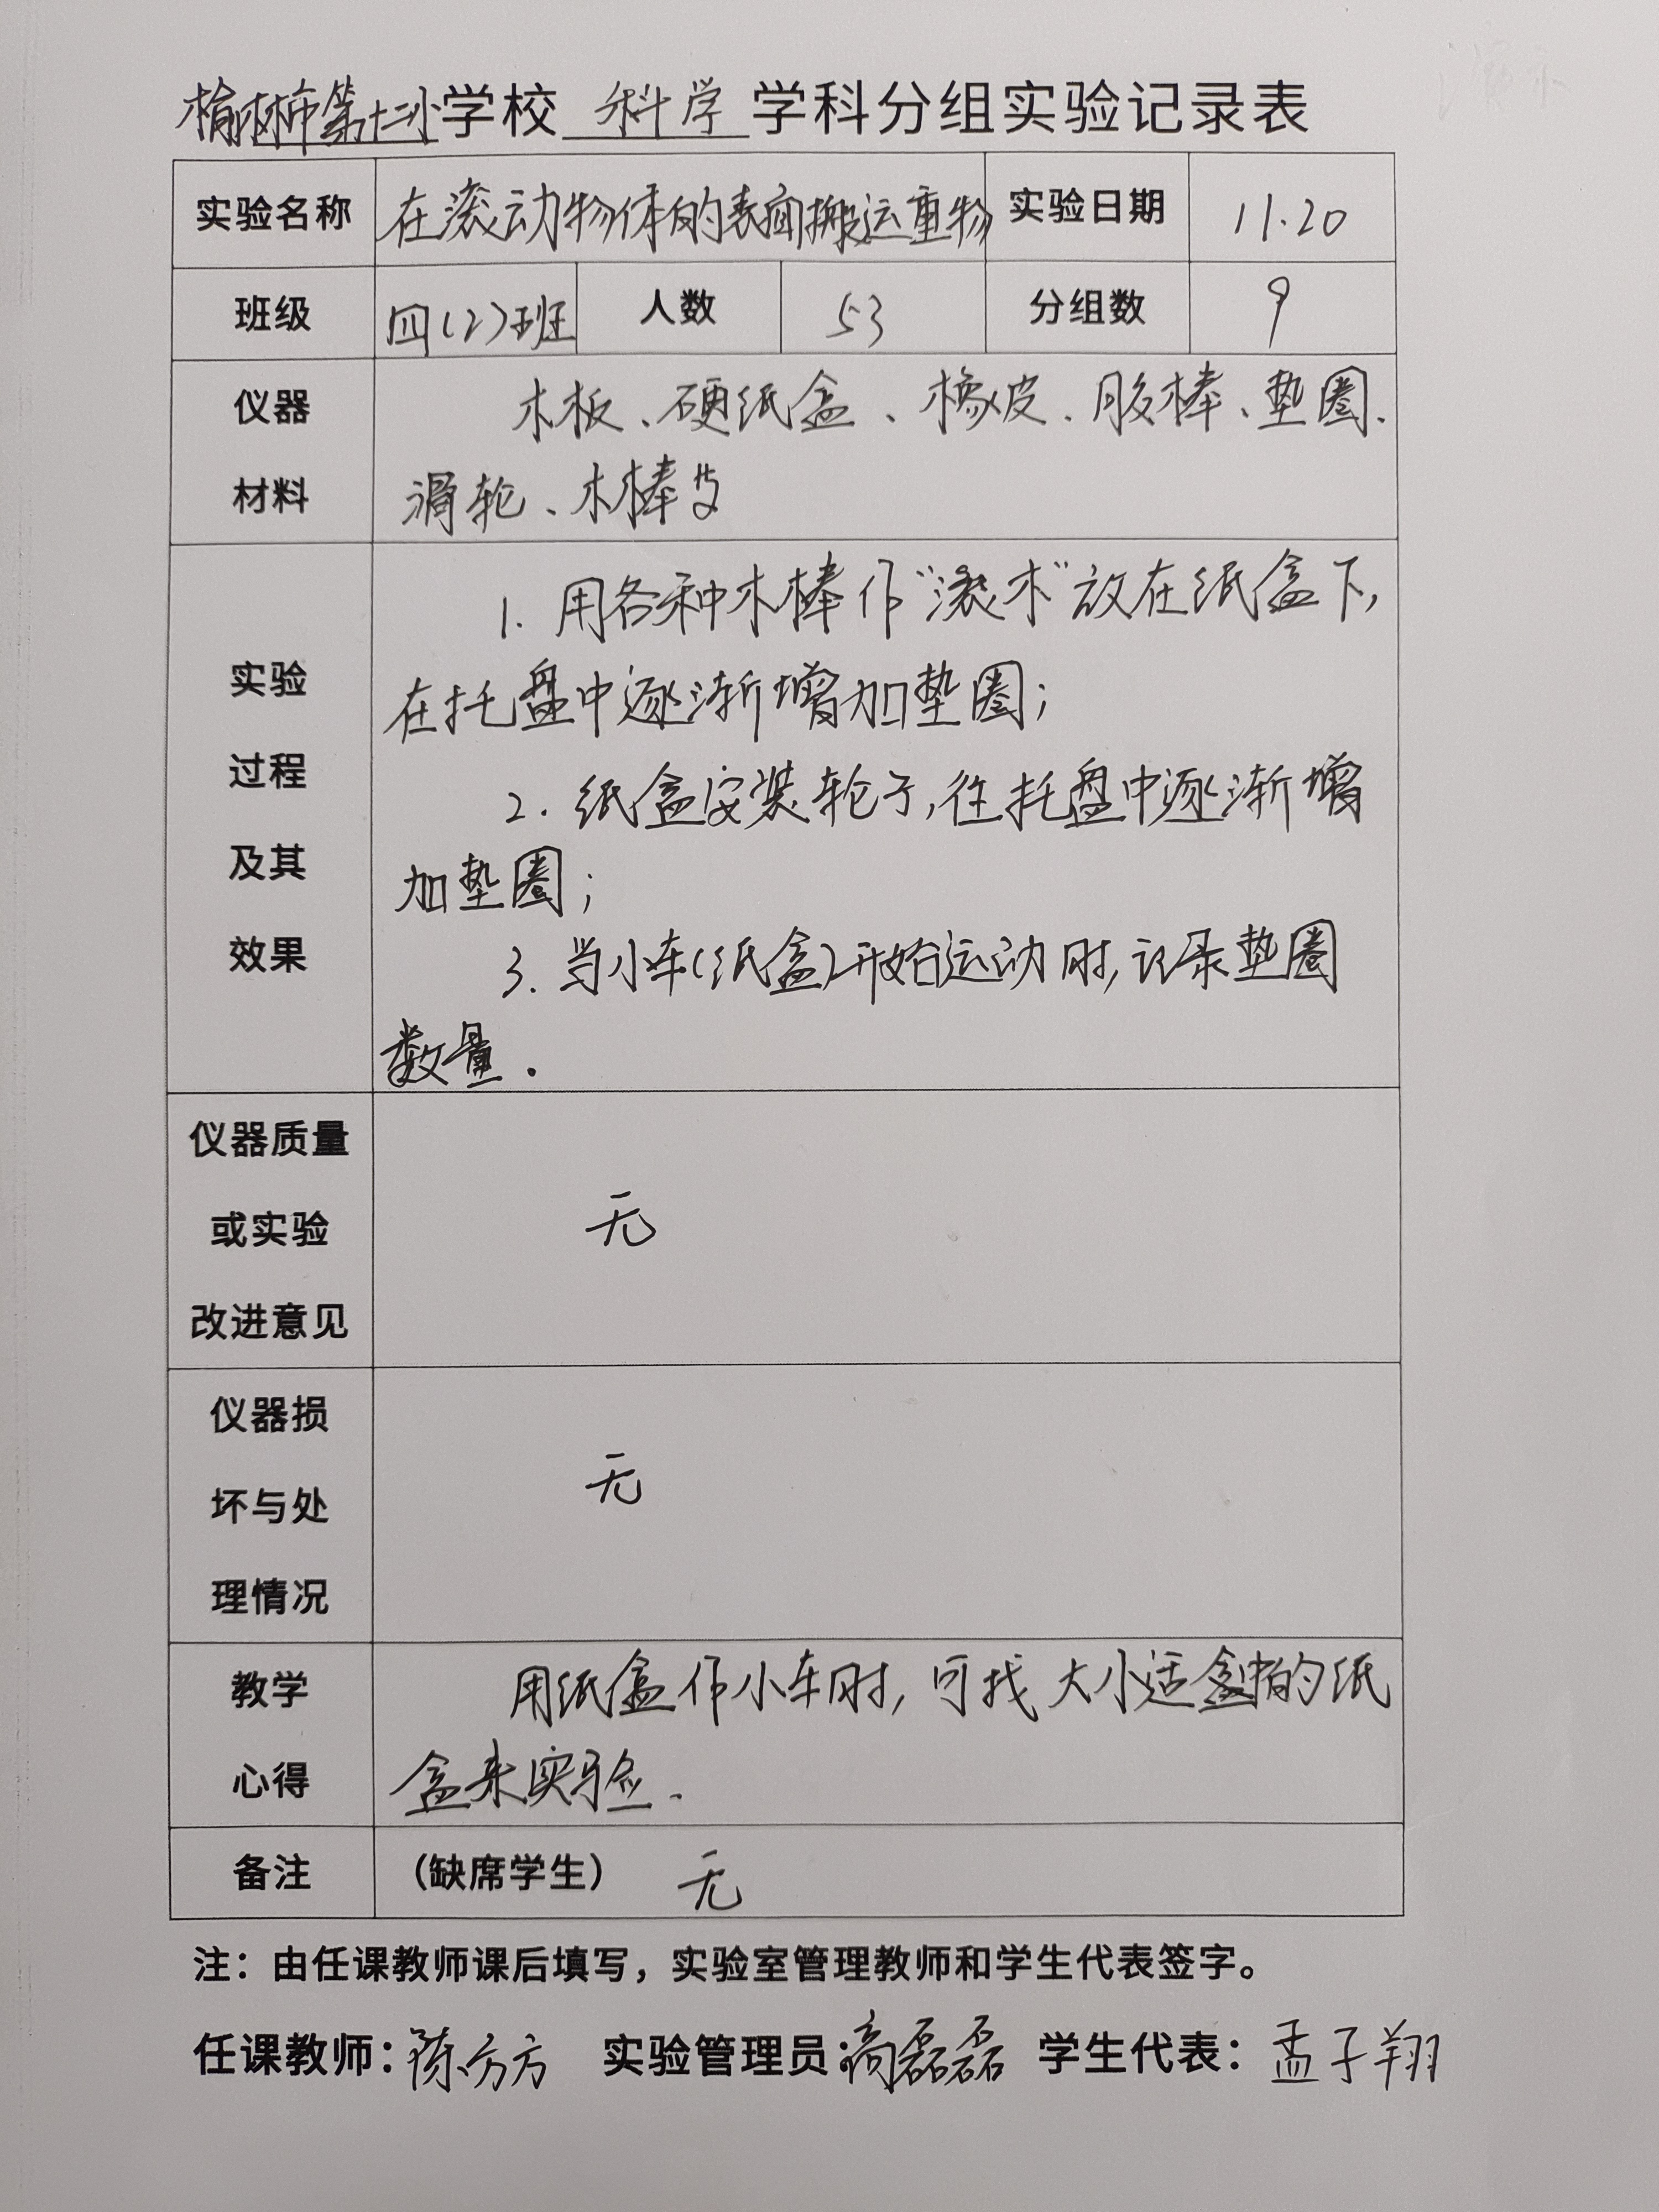 榆林市第十二小学校 科学 学科分组实验记录表
实验名称 在滚动物体的表面搬运重物 实验日期 11.20
班级 四(2)班 人数 53 分组数 9
仪器 木板、硬纸盒、橡皮、胶棒、垫圈、
材料 滑轮、木棒等
1. 用各种木棒作“滚木”放在纸盒下,
实验 在托盘中逐渐增加垫圈;
过程 2. 纸盒安装轮子,往托盘中逐渐增
及其 加垫圈;
效果 3. 当小车(纸盒)开始运动时,记录垫圈
数量.
仪器质量
或实验 无
改进意见
仪器损
坏与处 无
理情况
教学 用纸盒作小车时,可找大小适的纸
心得 盒来实验.
备注 (缺席学生) 无
注：由任课教师课后填写，实验室管理教师和学生代表签字。
任课教师：陈方方 实验管理员：磊磊 学生代表：孟子翔